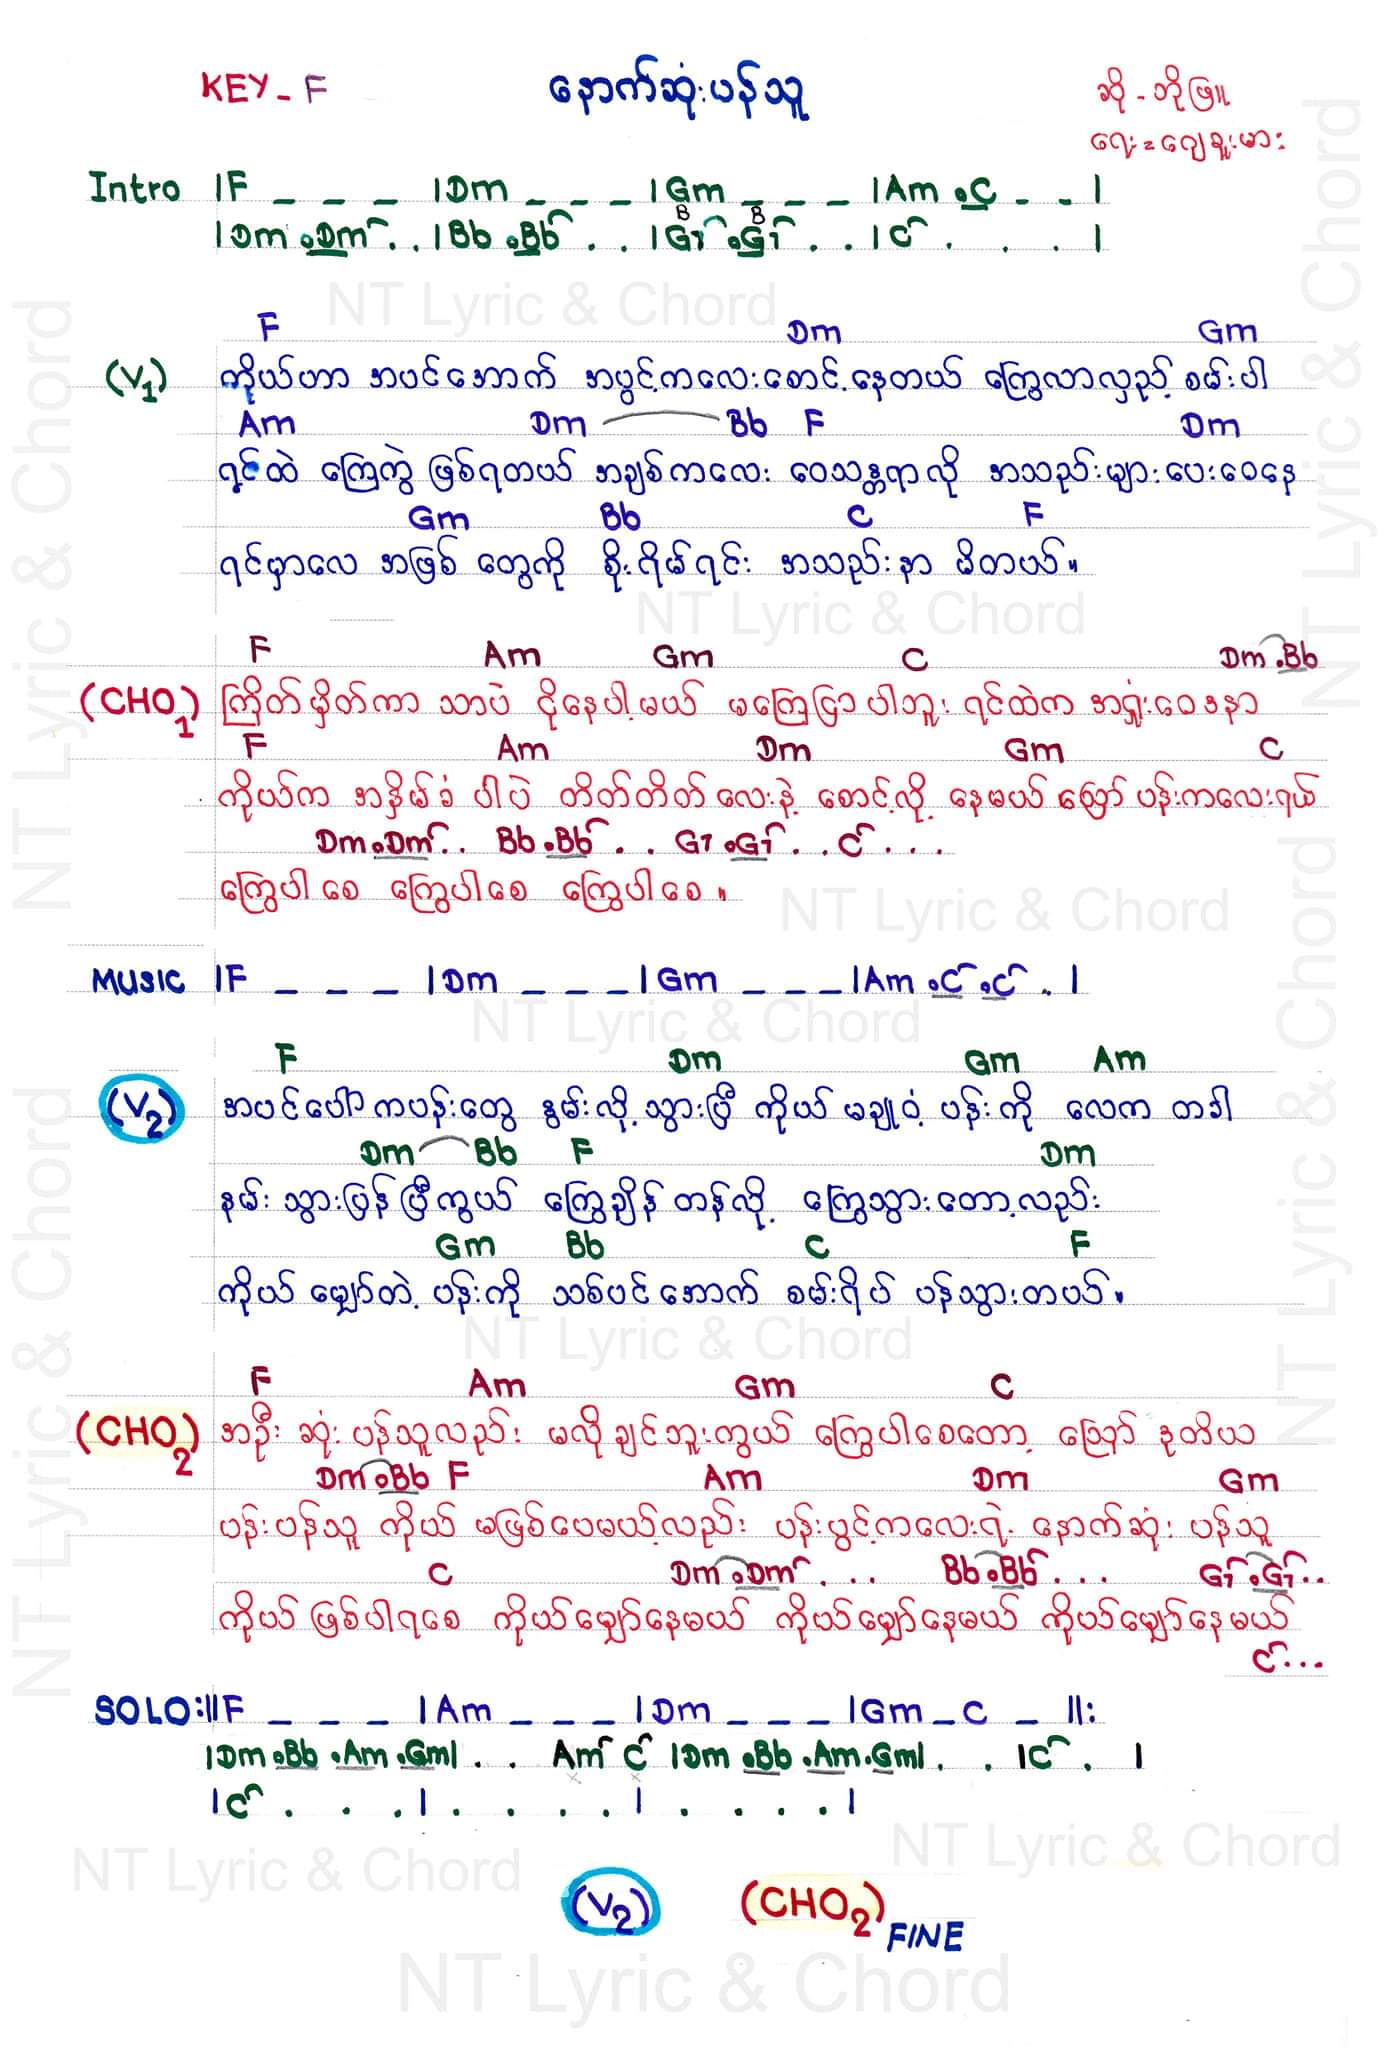 KEY - F
နောက်ဆုံးပန်သူ
ဆို - ဘိုဖြူ
ရေး = ဂျေခူးမား
Intro |F _ _ _ |Dm _ _ _ |Gm _ _ _ |Am .C - - |
B B
|Dm .Dm . . |Bb .Bb . . |G7 .G7 . . |C . . . |
F Dm Gm
(V1) ကိုယ်ဟာ အပင်အောက် အပွင့်ကလေးစောင့်နေတယ် ကြွေလာလှည့် စမ်းပါ
Am Dm Bb F Dm
ရင်ထဲ ကြေကွဲ ဖြစ်ရတယ် အချစ်ကလေး ဝေဿန္တရာလို အသည်းများပေးဝေနေ
Gm Bb C F
ရင်မှာလေ အဖြစ် တွေကို စိုးရိမ်ရင်း အသည်းနာ မိတယ်။
F Am Gm C Dm .Bb
(CHO1) ကြိတ်မှိတ်ကာ သာပဲ ငိုနေပါ့မယ် မကြေငြာပါဘူး ရင်ထဲက အရှုံးဝေဒနာ
F Am Dm Gm C
ကိုယ်က အနှိမ်ခံ ပါပဲ တိတ်တိတ်လေးနဲ့ စောင့်လို့ နေမယ် သြော် ပန်းကလေးရယ်
Dm .Dm . . Bb .Bb . . G7 .G7 . . C . . .
ကြွေပါစေ ကြွေပါစေ ကြွေပါစေ ။
MUSIC |F _ _ _ |Dm _ _ _ |Gm _ _ _ |Am .C .C . |
F Dm Gm Am
(V2) အပင်ပေါ်ကပန်းတွေ နွမ်းလို့သွားပြီ ကိုယ် မချူဝံ့ ပန်းကို လေက တခါ
Dm Bb F Dm
နမ်းသွားပြန်ပြီကွယ် ကြွေချိန်တန်လို့ ကြွေသွားတော့လည်း
Gm Bb C F
ကိုယ် မျှော်တဲ့ ပန်းကို သစ်ပင်အောက် စမ်းရိပ် ပန်သွားတယ်။
F Am Gm C
(CHO2) အဦးဆုံး ပန်သူလည်း မလိုချင်ဘူးကွယ် ကြွေပါစေတော့ သြော် ဒုတိယ
Dm .Bb F Am Dm Gm
ပန်းပန်သူ ကိုယ် မဖြစ်ပေမယ့်လည်း ပန်းပွင့်ကလေးရဲ့ နောက်ဆုံး ပန်သူ
C Dm .Dm . . . Bb .Bb . . . G7 .G7 . .
ကိုယ် ဖြစ်ပါရစေ ကိုယ်မျှော်နေမယ် ကိုယ်မျှော်နေမယ် ကိုယ်မျှော်နေမယ်
C . . .
SOLO :||F _ _ _ |Am _ _ _ |Dm _ _ _ |Gm _ C _ ||:
|Dm .Bb .Am .Gm| . . Am C |Dm .Bb .Am .Gm| . . |C . |
|C . . . | . . . . | . . . . |
(V2) (CHO2) FINE
NT Lyric & Chord